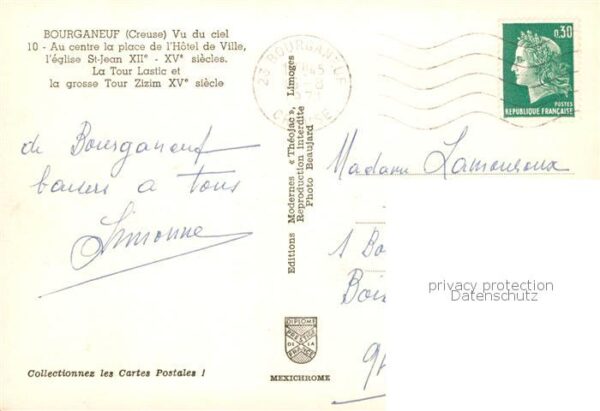 BOURGANEUF (Creuse) Vu du ciel
10 - Au centre la place de l'Hôtel de Ville,
l'église St-Jean XIIᵉ - XVᵉ siècles.
La Tour Lastic et
la grosse Tour Zizim XVᵉ siècle
de Bourganeuf
baisers a tous
Simonne
Collectionnez les Cartes Postales !
Editions Modernes « Théojac », Limoges
Reproduction interdite
Photo Beaujard
DIPLOME
PRESTIGE
DE LA
FRANCE
MEXICHROME
23 BOURGANEUF
CREUSE
0,30
POSTES
REPUBLIQUE FRANÇAISE
Madame Lamouroux
1 Bo
Boi
privacy protection
Datenschutz